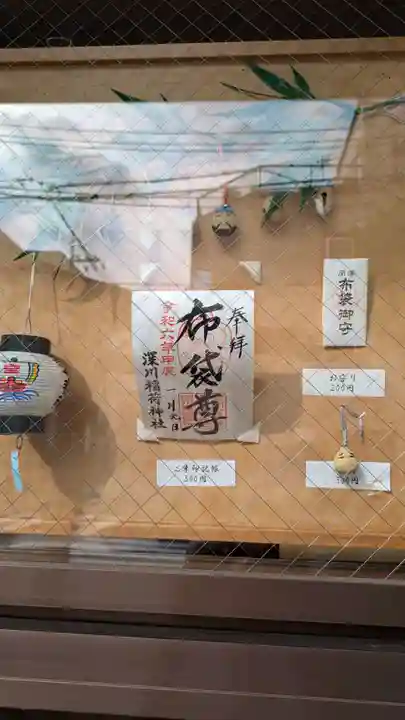 奉拝
布袋尊
令和六年甲辰
一月元日
深川稲荷神社
開運
布袋御守
お守り
200円
ご朱印記帳
300円
300円